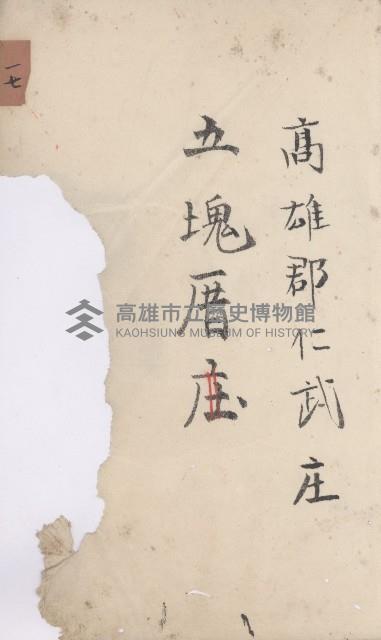 高雄郡仁武庄
五塊厝庄
一七
高雄市立歷史博物館
KAOHSIUNG MUSEUM OF HISTORY